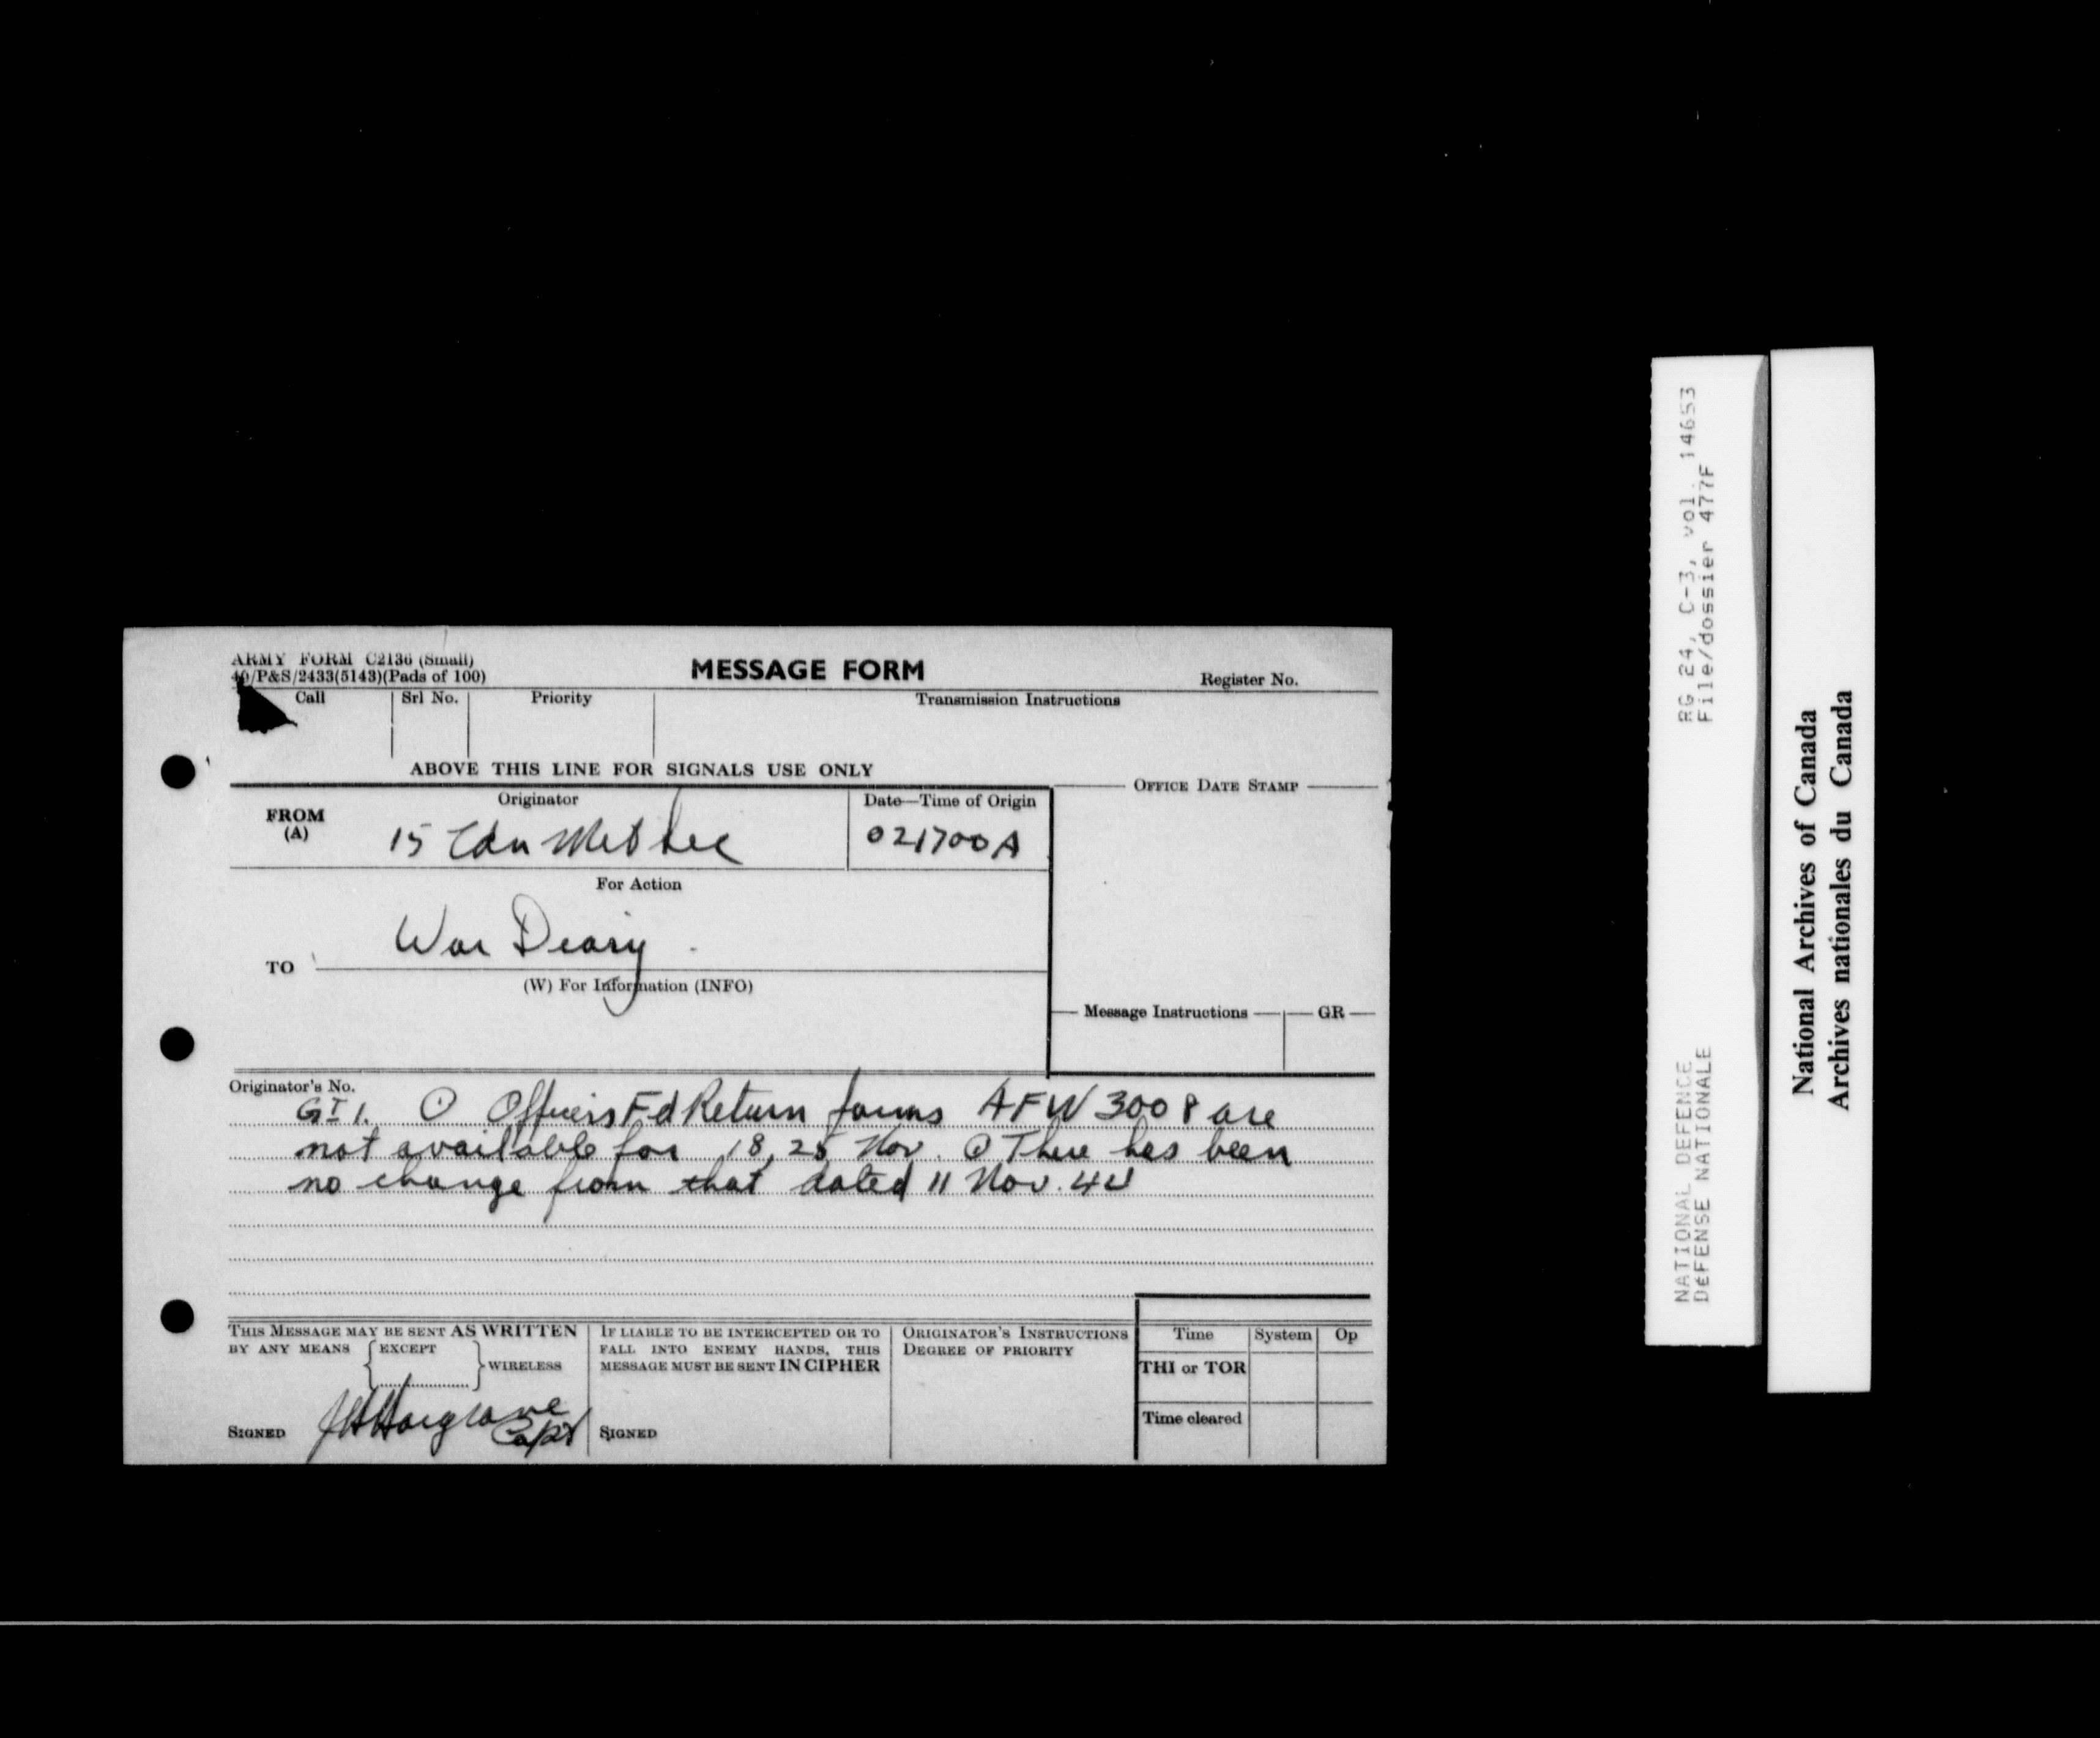 ARMY FORM C2136 (Small)
40/P&S/2433(5143)(Pads of 100)
MESSAGE FORM
Register No.
Call Srl No. Priority Transmission Instructions
ABOVE THIS LINE FOR SIGNALS USE ONLY
OFFICE DATE STAMP
FROM
(A)
Originator
15 Cdn Met Sec
Date—Time of Origin
021700A
For Action
War Deary.
TO
(W) For Information (INFO)
Message Instructions GR
Originator's No.
GI 1. Officers Fd Return forms AFW 3008 are
not available for 18, 25 Nov. There has been
no change from that dated 11 Nov. 44
THIS MESSAGE MAY BE SENT AS WRITTEN
BY ANY MEANS EXCEPT
WIRELESS
SIGNED JH Hargrave
Capt
IF LIABLE TO BE INTERCEPTED OR TO
FALL INTO ENEMY HANDS, THIS
MESSAGE MUST BE SENT IN CIPHER
SIGNED
ORIGINATOR'S INSTRUCTIONS
DEGREE OF PRIORITY
Time System Op
THI or TOR
Time cleared
NATIONAL DEFENCE RG 24, C-3, vol. 14653
DéFENSE NATIONALE File/dossier 477F
National Archives of Canada
Archives nationales du Canada